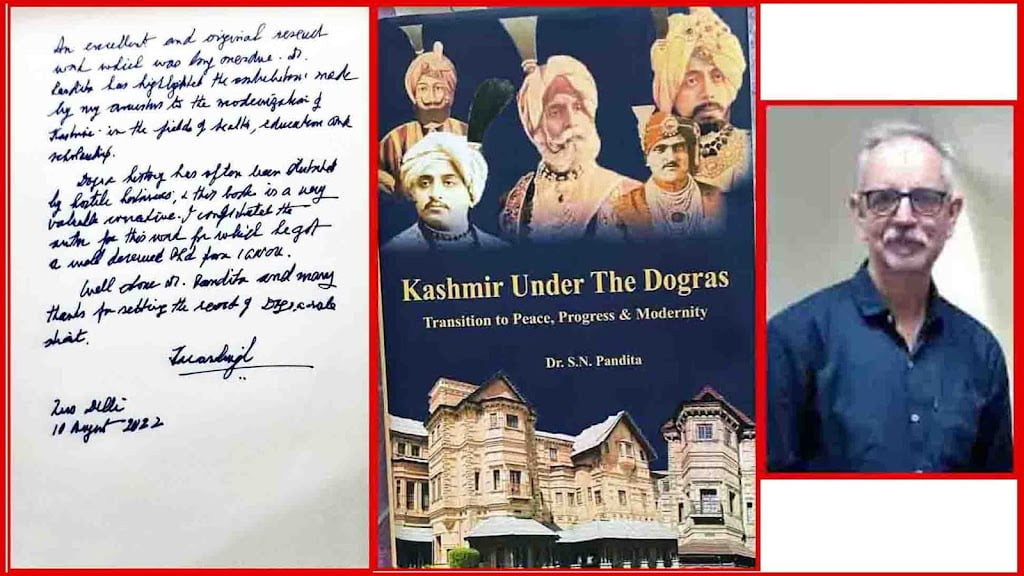 An excellent and original research
work which was long overdue. Dr.
Pandita has highlighted the contributions made
by my ancestors to the modernization of
Kashmir in the fields of health, education and
scholarship.
Dogra history has often been distorted
by hostile historians, & this book is a very
valuable corrective. I congratulate the
author for this work for which he got
a well deserved PhD from IGNOU.
Well done Dr. Pandita and many
thanks for setting the record of Dogra rule
straight.
Karan Singh
New Delhi
10 August 2022
Kashmir Under The Dogras
Transition to Peace, Progress & Modernity
Dr. S.N. Pandita